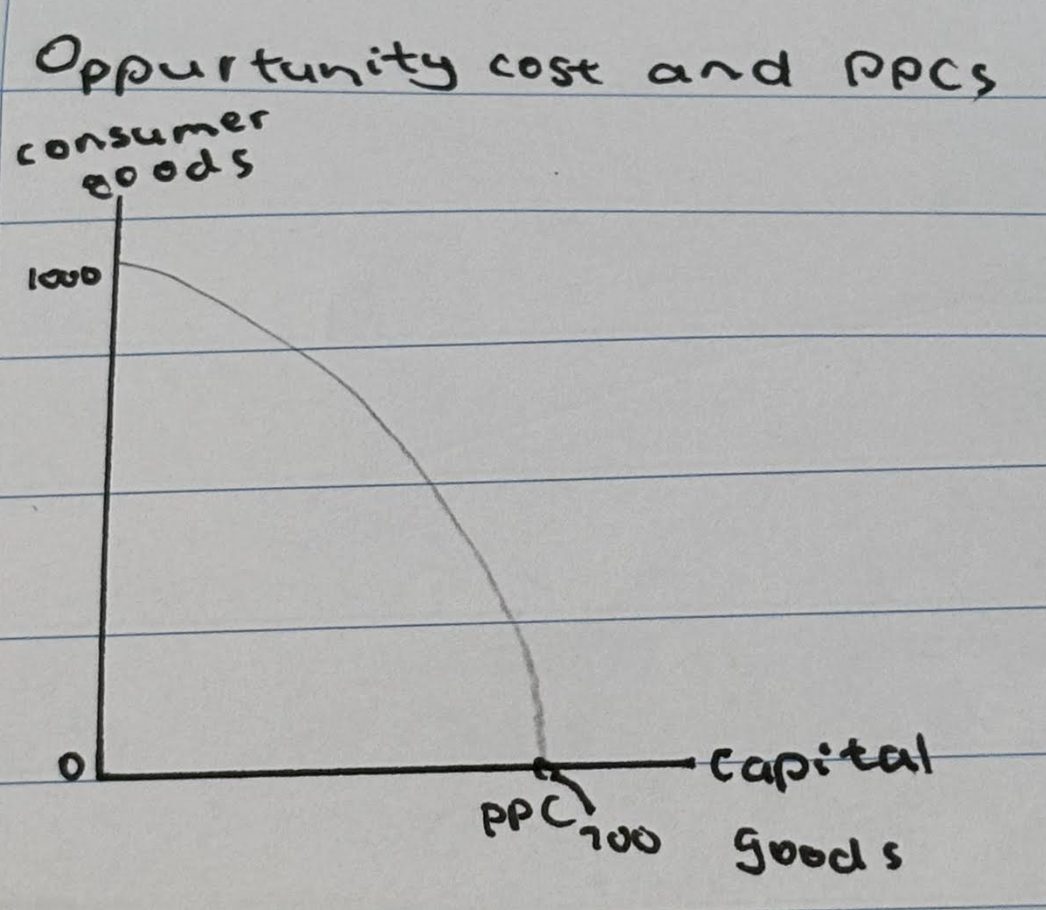 Oppurtunity cost and PPCs
consumer
goods
1000
0
capital
PPC
goods